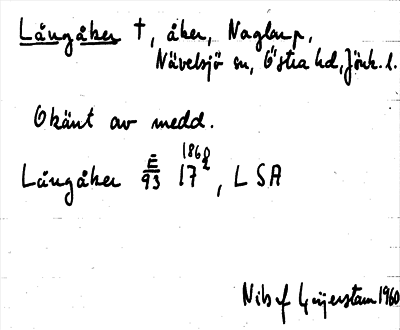 Långåker †, åker, Naglarp,
Nävelsjö sn, Östra hd, Jönk. l.
Okänt av medd.
1862
Långåker E/93 17, LSA
Nils f Geijerstam 1960